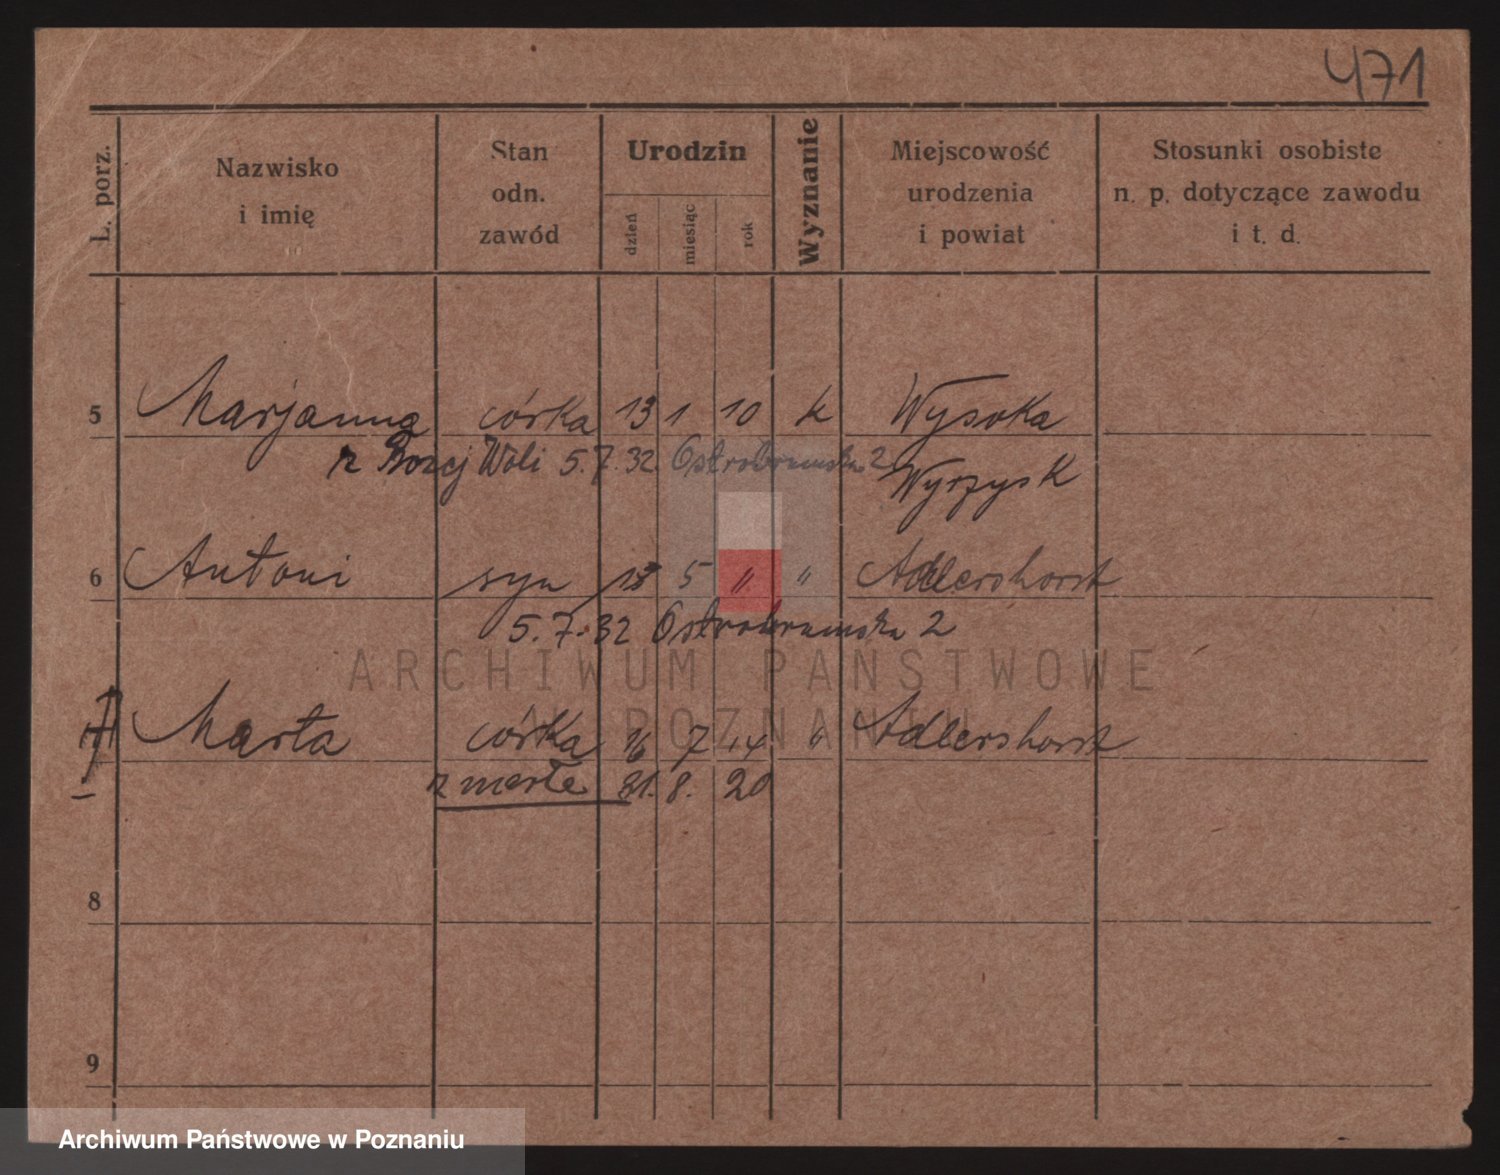 471
L. porz.
Nazwisko
i imię
Stan
odn.
zawód
Urodzin
dzień
miesiąc
rok
Wyznanie
Miejscowość
urodzenia
i powiat
Stosunki osobiste
n. p. dotyczące zawodu
i t. d.
5 Marjanna córka 13 1 10 k Wysoka
z Bożej Woli 5.7.32 Ostrobramska 2
Wyrzysk
6 Antoni syn 5 " " Adlershorst
5.7.32 Ostrobramska 2
ARCHIWUM PAŃSTWOWE
W POZNANIU
Marta córka 16 7 14 " Adlershorst
zmarła 31. 8. 20
8
9
Archiwum Państwowe w Poznaniu